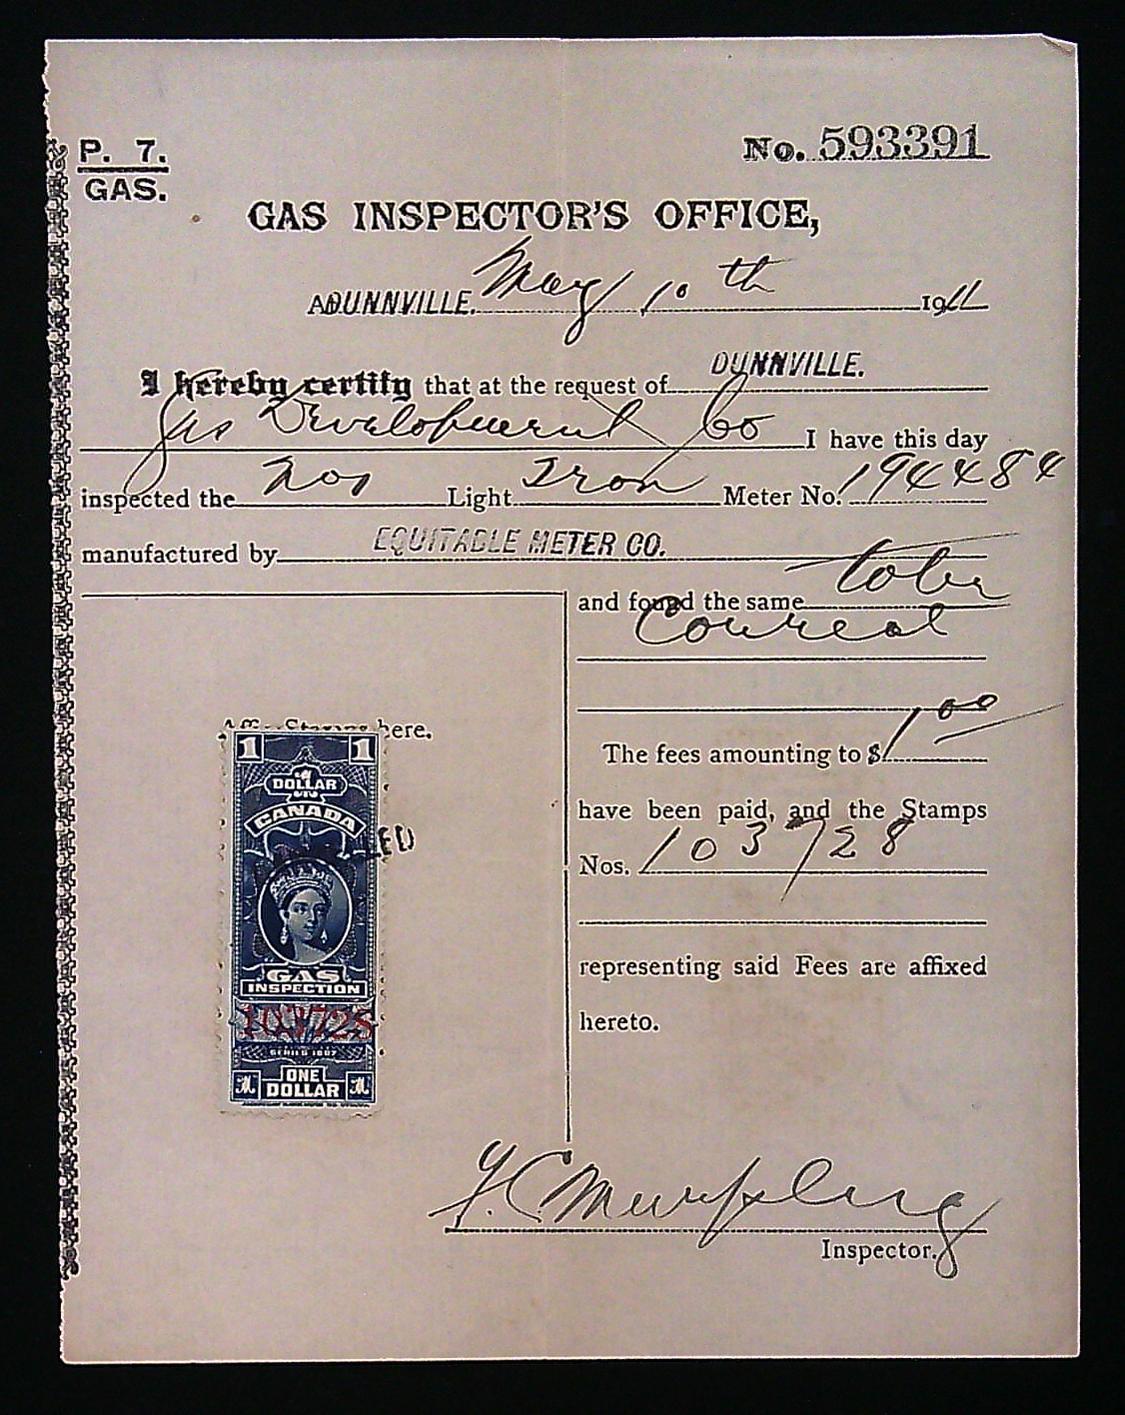 P. 7.
GAS.
No. 593391
GAS INSPECTOR'S OFFICE,
DUNNVILLE. May 10th 1911
I hereby certify that at the request of DUNNVILLE.
Gas Development Co I have this day
inspected the Light Iron Meter No. 194484
manufactured by EQUITABLE METER CO.
and found the same to be
Correct
Affix Stamps here.
The fees amounting to $1.00
have been paid, and the Stamps
Nos. 103728
representing said Fees are affixed
hereto.
1 1
DOLLAR
CANADA
GAS
INSPECTION
103728
SERIES 1897
ONE
DOLLAR
Inspector.